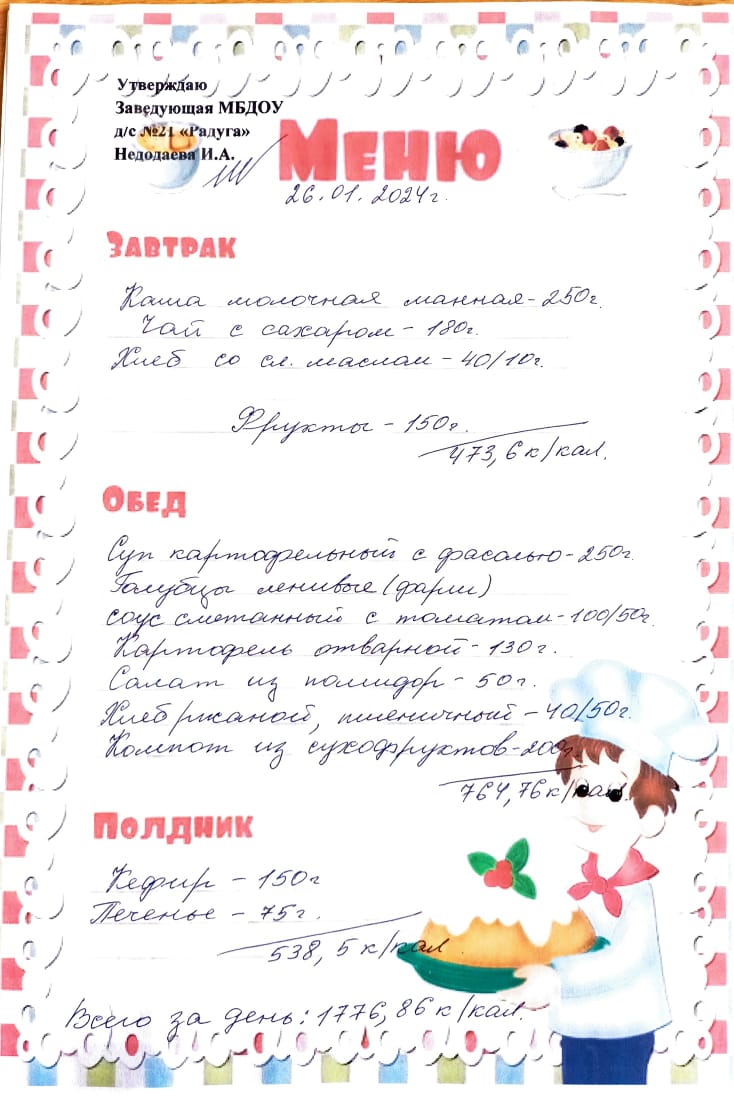 Утверждаю
Заведующая МБДОУ
д/с №21 «Радуга»
Недодаева И.А.
МЕНЮ
26.01.2024г.
ЗАВТРАК
Каша молочная манная - 250г.
Чай с сахаром - 180г.
Хлеб со сл. маслом - 40/10г.
Фрукты - 150г.
473,6 к/кал.
ОБЕД
Суп картофельный с фасолью - 250г.
Голубцы ленивые (фарш)
соус сметанный с томатом - 100/50г.
Картофель отварной - 130г.
Салат из помидор - 50г.
Хлеб ржаной, пшеничный - 40/50г.
Компот из сухофруктов - 200г.
764,76 к/кал.
ПОЛДНИК
Кефир - 150г
Печенье - 75г.
538,5 к/кал
Всего за день: 1776,86 к/кал.